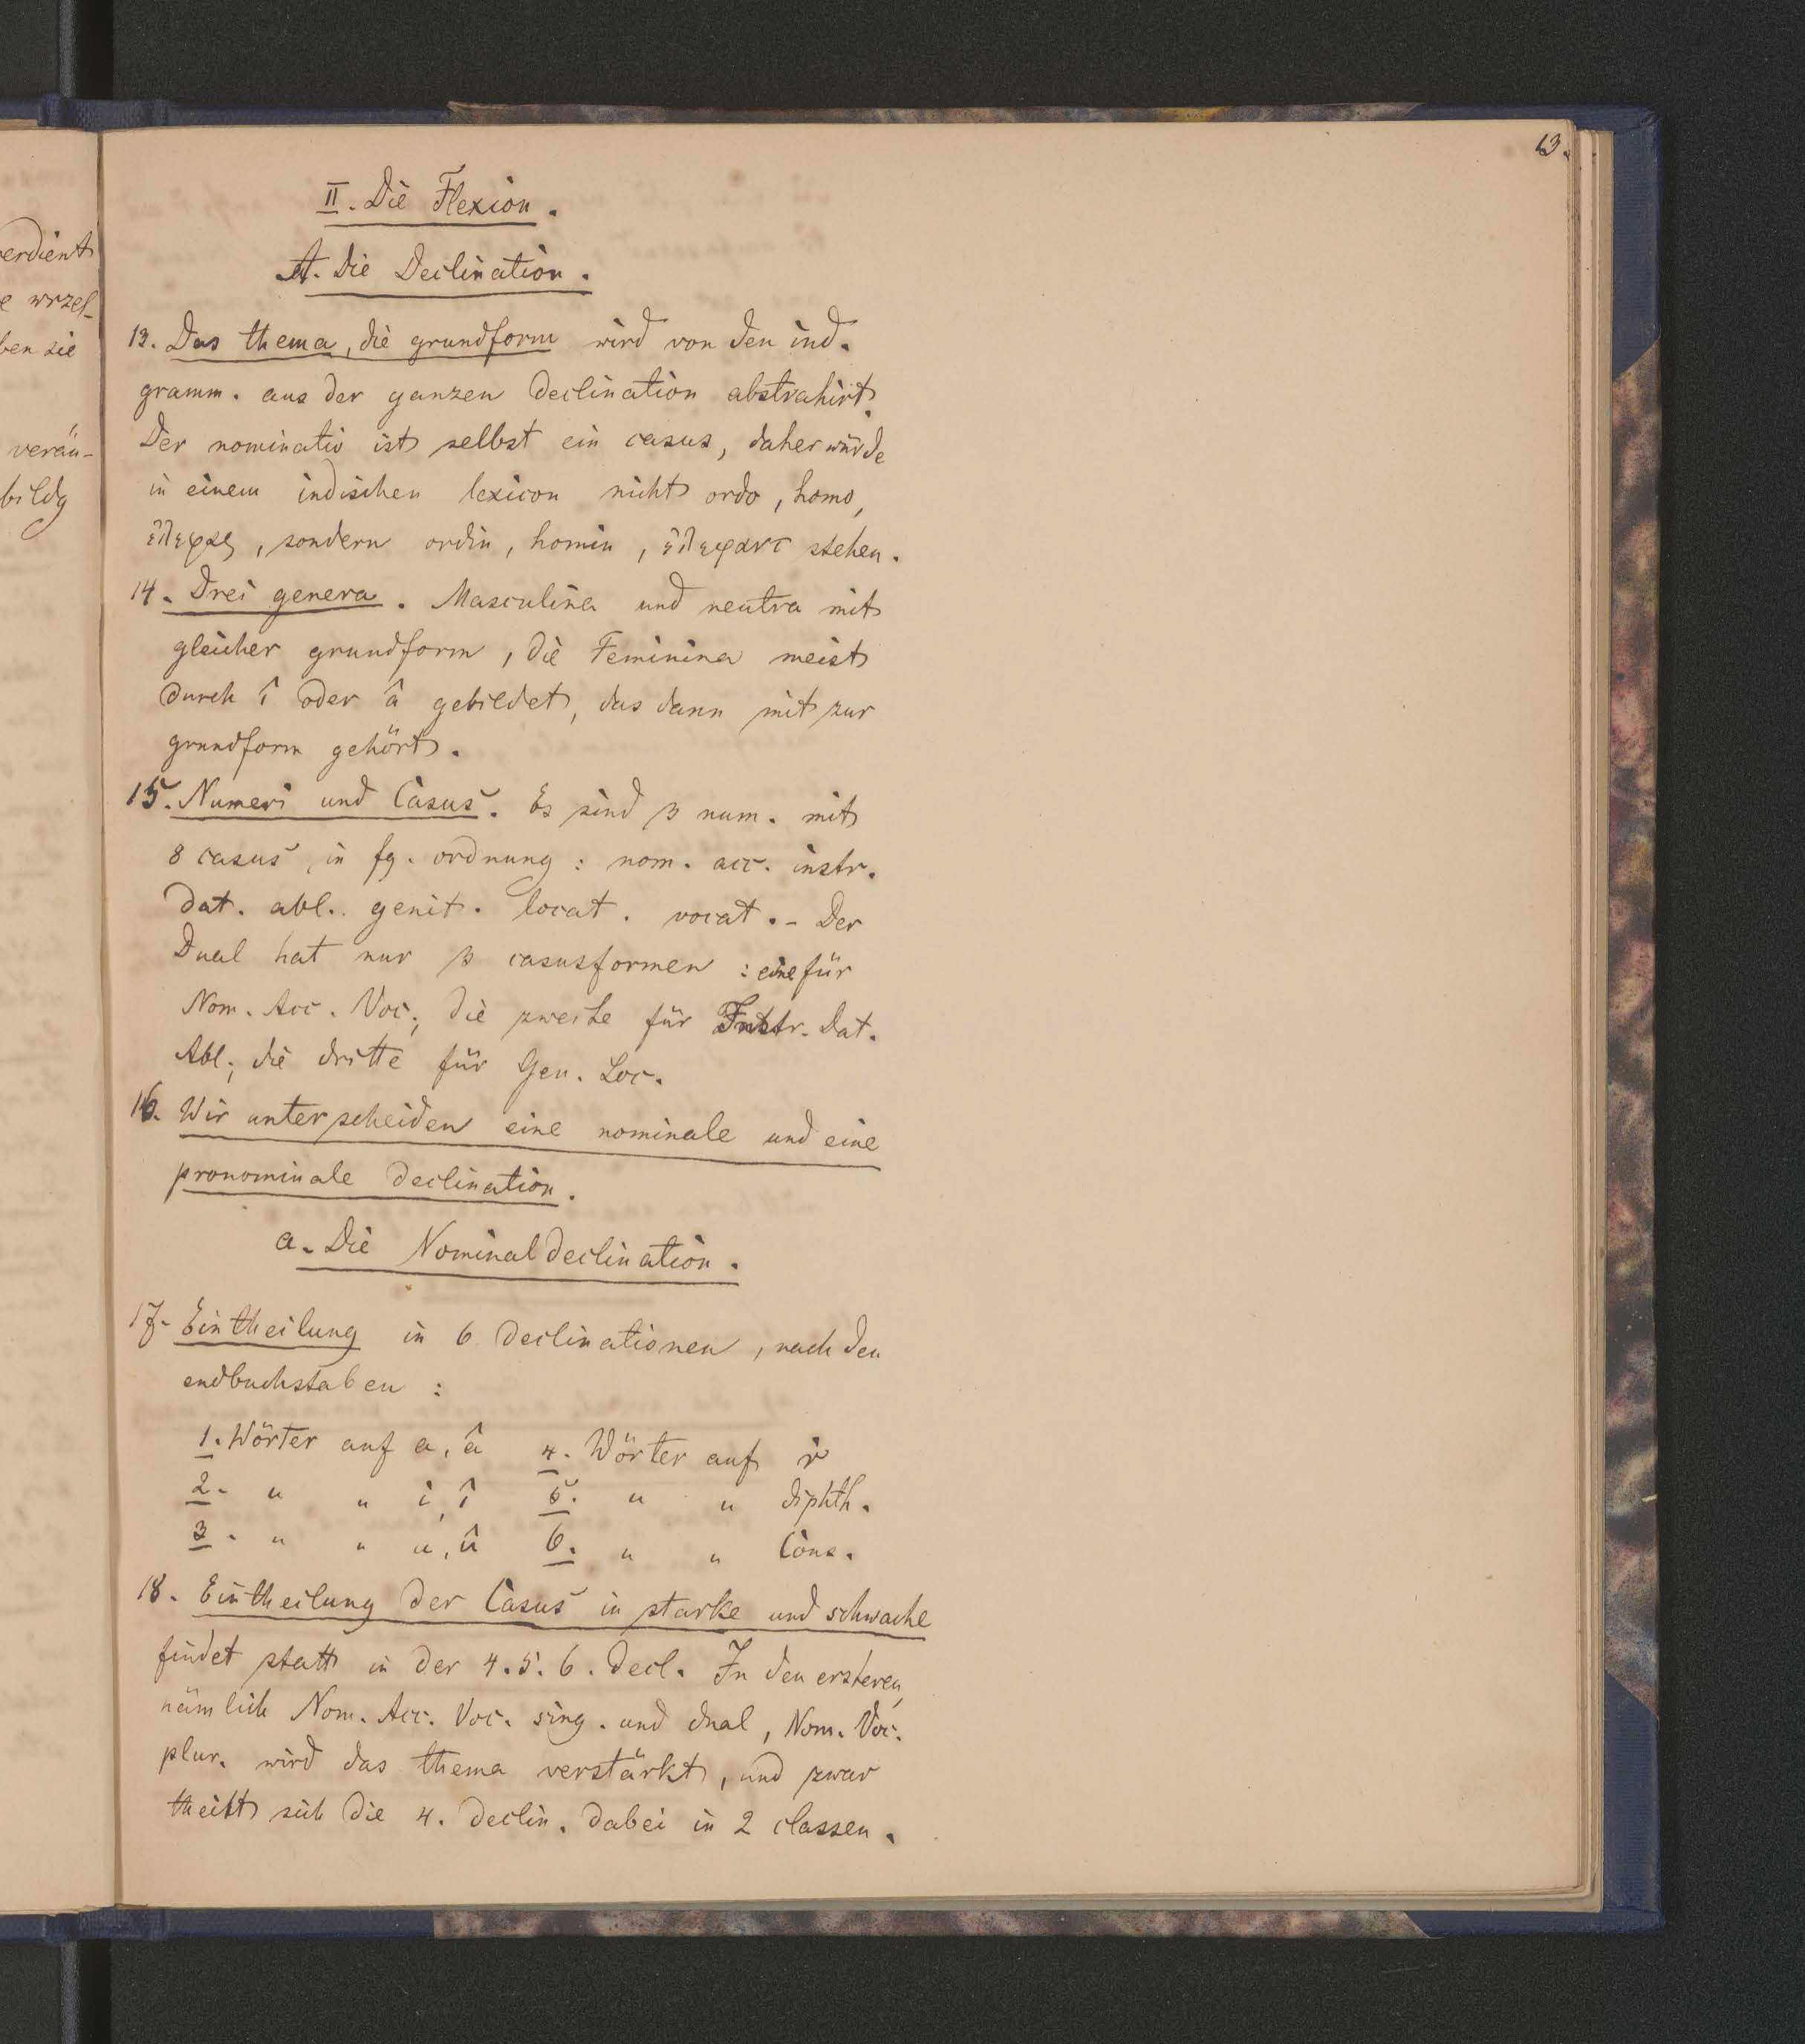 erdient
e wrzel-
ben sie
verän-
bildg
13.
II. Die Flexion.
A. Die Declination.
13. Das thema, die grundform wird von den ind.
gramm. aus der ganzen declination abstrahirt.
Der nominativ ist selbst ein casus, daher würde
in einem indischen lexicon nicht ordo, homo,
ἐλεφας, sondern ordin, homin, ἐλεφαντ stehen.
14. Drei genera. Masculina und neutra mit
gleicher grundform, die Feminina meist
durch î oder â gebildet, das dann mit zur
grundform gehört.
15. Numeri und Casus. Es sind 3 num. mit
8 casus, in fg. ordnung: nom. acc. instr.
dat. abl. genit. locat. vocat. - Der
Dual hat nur 3 casusformen: eine für
Nom. Acc. Voc.; die zweite für Instr. Dat.
Abl.; die dritte für Gen. Loc.
16. Wir unterscheiden eine nominale und eine
pronominale declination.
a. Die Nominaldeclination.
17. Eintheilung in 6 declinationen, nach den
endbuchstaben:
1. Wörter auf a, â 4. Wörter auf ṙ
2. " " i, î 5. " " diphth.
3. " " u, û 6. " " Cons.
18. Eintheilung der Casus in starke und schwache
findet statt in der 4. 5. 6. decl. In den ersteren,
nämlich Nom. Acc. Voc. sing. und dual, Nom. Voc.
plur. wird das thema verstärkt, und zwar
theilt sich die 4. declin. dabei in 2 classen.